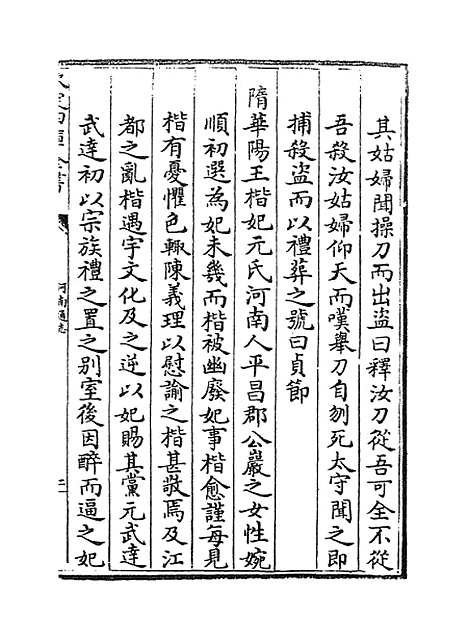 其姑婦聞操刀而出盜曰釋汝刀從吾可全不從
吾殺汝姑婦仰天而嘆舉刀自刎死太守聞之即
捕殺盜而以禮葬之號曰貞節
隋華陽王楷妃元氏河南人平昌郡公巖之女性婉
順初選為妃未幾而楷被幽廢妃事楷愈謹每見
楷有憂懼色輒陳義理以慰諭之楷甚敬焉及江
都之亂楷遇宇文化及之逆以妃賜其黨元武達
武達初以宗族禮之置之別室後因醉而逼之妃
河南通志